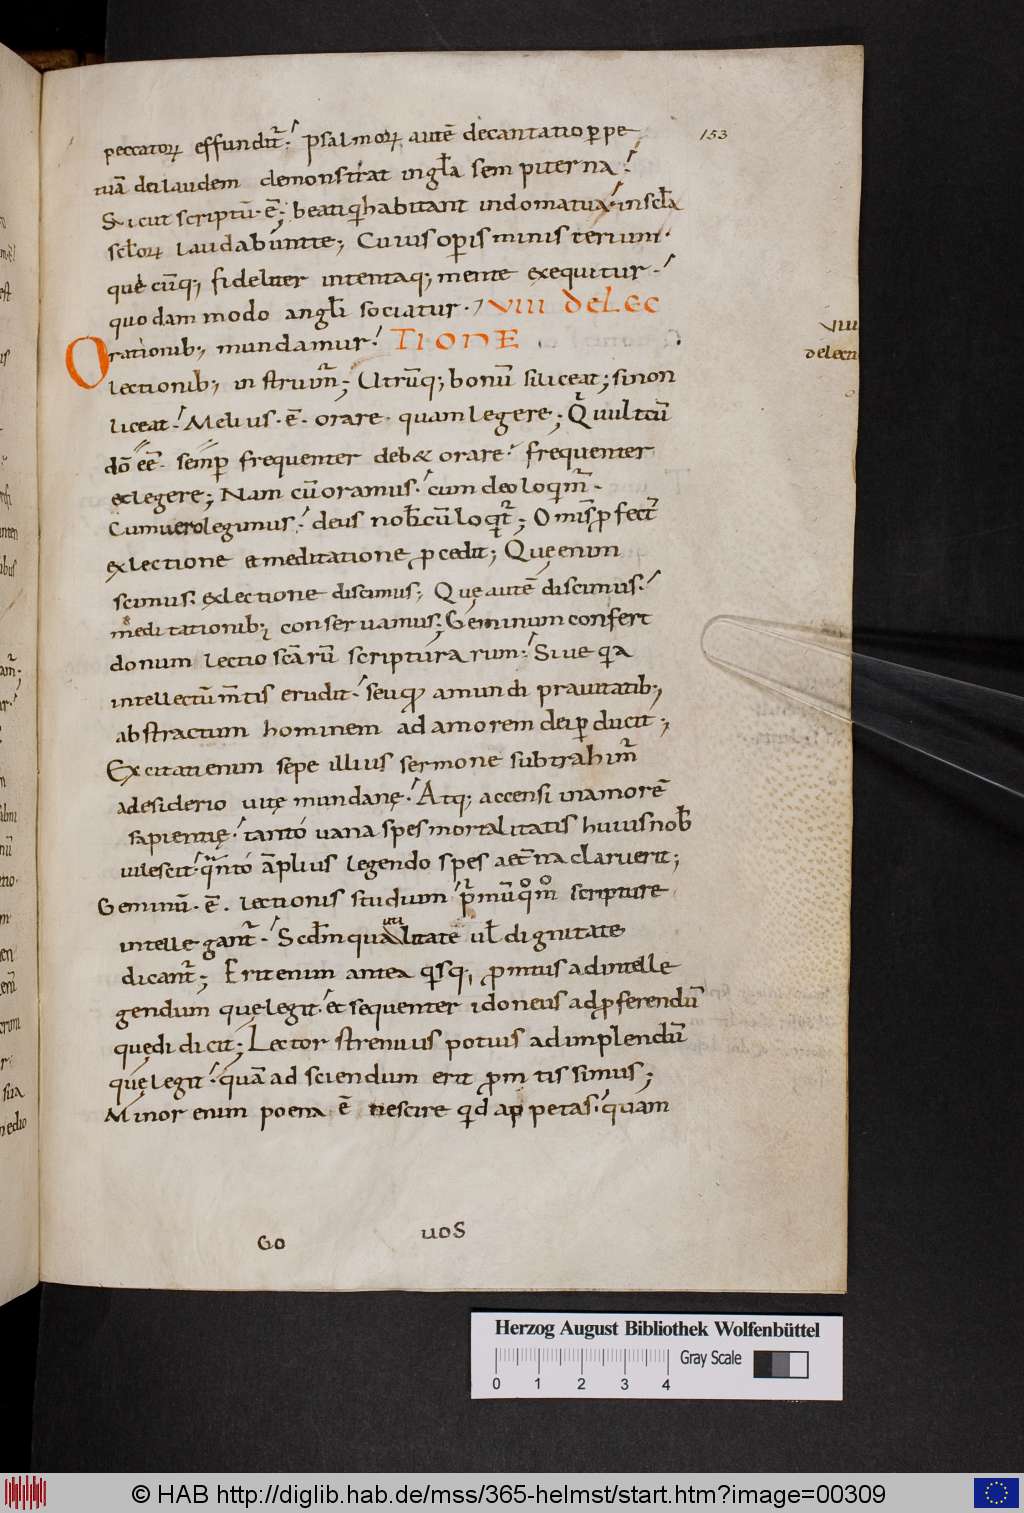 153
peccatoꝝ effundit᷑. psalmoꝝ autē decantatio ꝑpe
tuā dei laudem demonstrat in gła sempiterna
Sicut scriptū. ē; beati qͥ habitant in domo tua. in sc̄la
scl̄oꝝ laudabunt te; Cuius oꝑis ministerium.
quicūq; fideliter intentaq; mente exequitur.
quodam modo angłi sociatur. VIIII DE LEC
Orationib; mundamur. TIONE
VIIII
de lecti
o
lectionib; instruim᷑; Utrūq; bonū si liceat; si non
liceat. Melius. ē. orare. quam legere; Qͥ uult cū
dō eē. semꝑ frequenter deb& orare. frequenter
et legere; Nam cū oramus. cum deo loqim᷑.
Cum uero legimus. deus nob̄cū loqt᷑; Omīs ꝓfect᷑
ex lectione et meditatione ꝓcedit; Quę enim
scimus. ex lectione discimus; Quę autē discimus.
meditationib; conseruamus; Geminum confert
donum lectio scārū scripturarum. Siue qͥa
intellectū m̄tis erudit. seu qͩ a mundi prauitatib;
abstractum hominem ad amorem dei ꝑducit;
Excitati enim sepe illius sermone subtrahim᷑
a desiderio uitę mundanę. Atq; accensi in amorē
sapientię. tanto uana spes mortalitatis huius nob̄
uilescit. qͣnto āplius legendo spes aet̄na claruerit;
Geminū. ē. lectionis studium. p᷑mū qͦmͦ scripture
intellegant᷑. Scd̄m qua utilitate ul̄ dignitate
dicant᷑; Erit enim antea qͥsq; ꝓmtus ad intelle
gendum quę legit. et sequenter idoneus ad ꝓferendū
quę didicit; Lector strenuus potius ad implendū
quę legit. quā ad sciendum erit ꝓmtissimus;
Minor enim poena ē nescire qͥd appetas. quam
Go uos
Herzog August Bibliothek Wolfenbüttel
0 1 2 3 4 Gray Scale
© HAB http://diglib.hab.de/mss/365-helmst/start.htm?image=00309